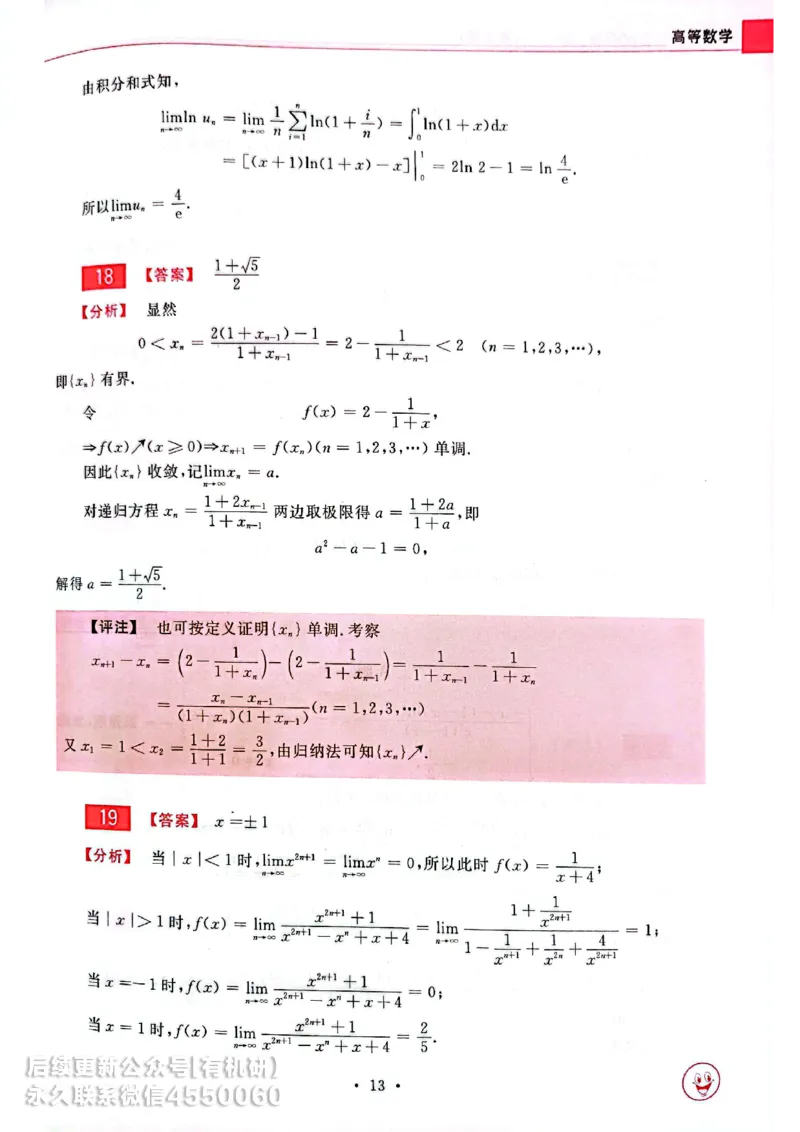 高等数学
由积分和式知,
$\lim_{n\to\infty}\ln u_n = \lim_{n\to\infty}\frac{1}{n}\sum_{i=1}^{n}\ln(1+\frac{i}{n}) = \int_0^1 \ln(1+x)dx$
$= [(x+1)\ln(1+x)-x]\Big|_0^1 = 2\ln 2-1 = \ln\frac{4}{e}.$
所以$\lim_{n\to\infty}u_n = \frac{4}{e}.$
18 【答案】 $\frac{1+\sqrt{5}}{2}$
【分析】 显然
$0 < x_n = \frac{2(1+x_{n-1})-1}{1+x_{n-1}} = 2-\frac{1}{1+x_{n-1}} < 2 \quad (n=1,2,3,\cdots),$
即{$x_n$}有界.
令 $f(x) = 2-\frac{1}{1+x},$
$\Rightarrow f(x)\nearrow(x\geqslant 0)\Rightarrow x_{n+1} = f(x_n)(n=1,2,3,\cdots)$ 单调.
因此{$x_n$}收敛,记$\lim_{n\to\infty}x_n = a.$
对递归方程 $x_n = \frac{1+2x_{n-1}}{1+x_{n-1}}$ 两边取极限得 $a = \frac{1+2a}{1+a}$,即
$a^2-a-1=0,$
解得 $a = \frac{1+\sqrt{5}}{2}.$
【评注】 也可按定义证明{$x_n$}单调.考察
$x_{n+1}-x_n = \left(2-\frac{1}{1+x_n}\right)-\left(2-\frac{1}{1+x_{n-1}}\right) = \frac{1}{1+x_{n-1}}-\frac{1}{1+x_n}$
$= \frac{x_n-x_{n-1}}{(1+x_n)(1+x_{n-1})}(n=1,2,3,\cdots)$
又 $x_1 = 1 < x_2 = \frac{1+2}{1+1} = \frac{3}{2}$,由归纳法可知{$x_n$}$\nearrow$.
19 【答案】 $x=\pm 1$
【分析】 当$|x|<1$时,$\lim_{n\to\infty}x^{2n+1} = \lim_{n\to\infty}x^n = 0$,所以此时 $f(x) = \frac{1}{x+4}$;
当$|x|>1$时,$f(x) = \lim_{n\to\infty}\frac{x^{2n+1}+1}{x^{2n+1}-x^n+x+4} = \lim_{n\to\infty}\frac{1+\frac{1}{x^{2n+1}}}{1-\frac{1}{x^{n+1}}+\frac{1}{x^{2n}}+\frac{4}{x^{2n+1}}} = 1$;
当$x=-1$时,$f(x) = \lim_{n\to\infty}\frac{x^{2n+1}+1}{x^{2n+1}-x^n+x+4} = 0$;
当$x=1$时,$f(x) = \lim_{n\to\infty}\frac{x^{2n+1}+1}{x^{2n+1}-x^n+x+4} = \frac{2}{5}.$
后续更新公众号[有机研]
永久联系微信4550060
• 13 •